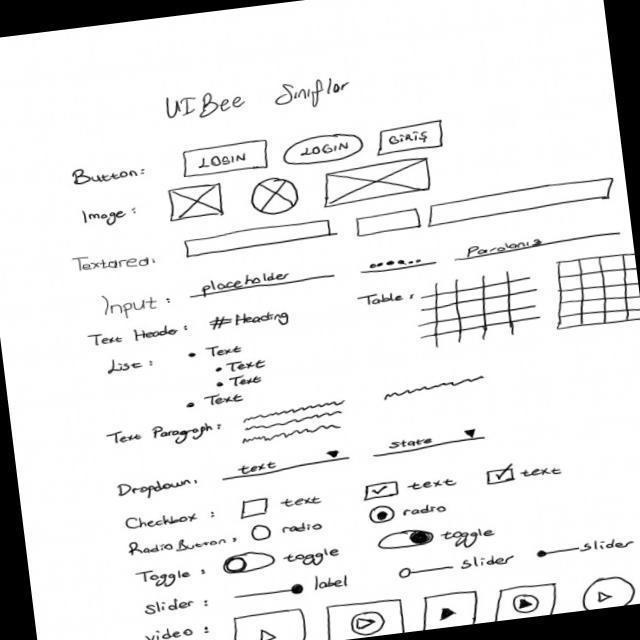 UIBee Sınıflar
Button: LOGIN LOGIN GİRİŞ
Image:
Textarea:
Input: placeholder Parolanız
Text Header: #Heading Table:
List: • Text
• Text
• Text
• Text
Text Paragraph:
Dropdown: text state
Checkbox: text text text
Radio Button: radio radio
Toggle: toggle toggle
Slider: label slider slider
video: